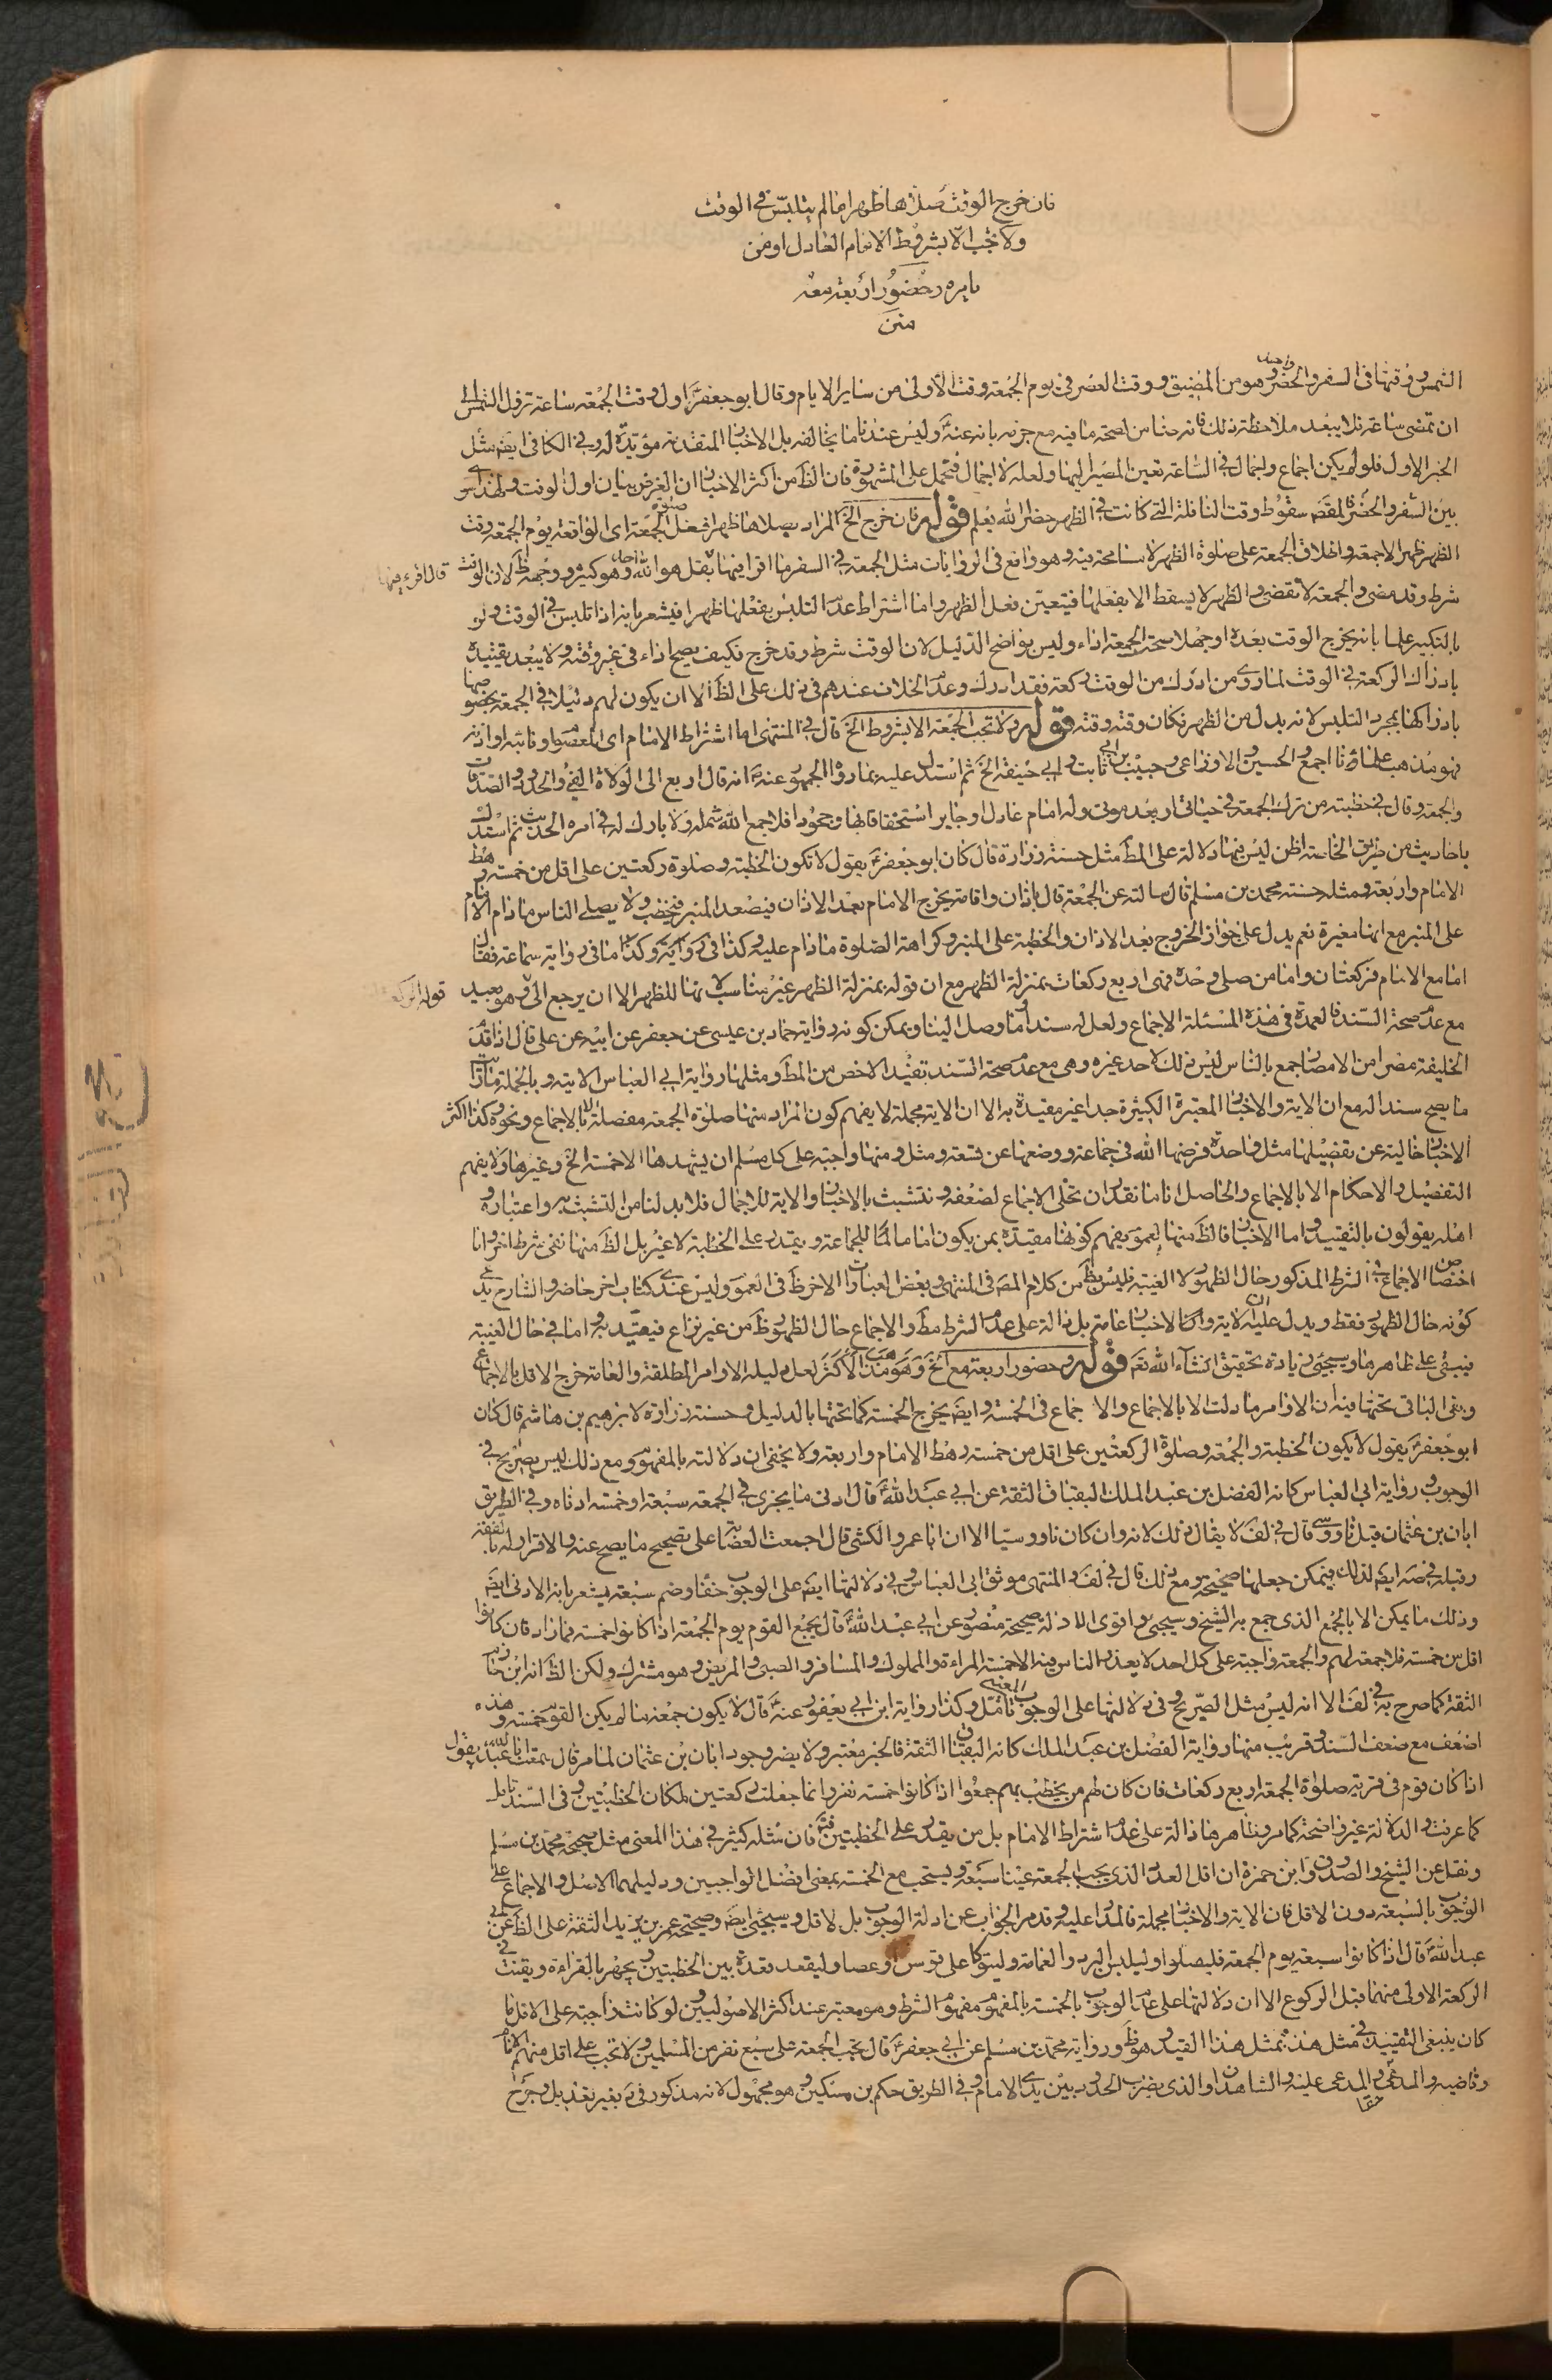 فان خرج الوقت صلاها ظهرا ما لم يتلبس في الوقت
ولا تجب الا بشروط الامام العادل او من
يامره وحضور اربعة معه
متن
الشمس ووقتها في السفر والحضر واحد وهو من المضيق ووقت العصر في يوم الجمعة وقت الاولى من ساير الايام وقال ابو جعفر ع اول وقت الجمعة ساعة تزول الشمس الى
ان تمضي ساعة فلا يبعد ملاحظة ذلك فانه ضامن لصحة ما فيه مع جزمه بانه عنه ع وليس عندنا ما يخالفه بل الاخبار المتقدمة مؤيدة له وفي الكافي ايضا مثل
الخبر الاول فلو لم يكن اجماع واجمال في الساعة تعين المصير اليها ولعله لاجمال فتحمل على المشهورة فان الظ من اكثر الاخبار ان الغرض بيان اول الوقت
بين السفر والحضر فالمقصد سقوط وقت النافلة التي كانت في الظهر حضرا الله يعلم قوله فان خرج الخ المراد يصلاها ظهرا فعل صلوة الجمعة اي الواقعة يوم الجمعة وقت
الظهر ظهرا لا جمعة واطلاق الجمعة على صلوة الظهر لا مسامحة فيه وهو واقع في الروايات مثل الجمعة في السفر ما اقرا فيها بقل هو الله احد وهو كثير ووجهه ظ لان الوقت قال اقرء فيها
شرط وقد مضى والجمعة لا تقضى والظهر لا يسقط الا بفعلها فيتعين فعل الظهر واما اشتراط عدم التلبس بفعلها ظهرا فيشعر بانه اذا تلبس في الوقت ولو
بالتكبير علما بانه يخرج الوقت بعده او جهلا صحة الجمعة اداء وليس بواضح الدليل لان الوقت شرط وقد خرج فكيف يصح اداء في غير وقته ولا يبعد تقييده
بادراك الركعة في الوقت لما روي من ادرك من الوقت ركعة فقد ادرك وعدم الخلاف عندهم في ذلك على الظ الا ان يكون لهم دليلا في الجمعة بخصوصها
بادراكها بمجرد التلبس لانه بدل من الظهر فكان وقته وقته قوله ولا تجب الجمعة الا بشروط الخ قال في المنتهى اما اشتراط الامام اي المعصوم او نائبه او اذنه
فهو مذهب علمائنا اجمع والحسين والاوزاعي وحبيب بن ابي ثابت وابي حنيفة الخ ثم استدل عليه بما رواه الجمهور عنه ع انه قال اربع الى الولاة الفئ والحدود والصدقات
والجمعة وقال في خطبته من ترك الجمعة في حياتي او بعد موتي وله امام عادل او جاير استخفافا بها وجحودا فلا جمع الله شمله ولا بارك له في امره الحديث ثم استدل
باحاديث من طريق الخاصة اظن ليس فيها دلالة على المط مثل حسنة زرارة قال كان ابو جعفر ع يقول لا تكون الخطبة وصلوة ركعتين على اقل من خمسة رهط
الامام واربعة ومثله حسنة محمد بن مسلم قال سالته عن الجمعة قال باذان واقامة يخرج الامام بعد الاذان فيصعد المنبر فيخطب ولا يصلى الناس ما دام الامام
على المنبر مع انها مغيرة نعم يدل على جواز الخروج بعد الاذان والخطبة على المنبر وكراهة الصلوة ما دام عليه وكذا في رواية وكذا ما في رواية سماعة فقال
اما مع الامام فركعتان واما من صلى وحده فهى اربع ركعات بمنزلة الظهر مع ان قوله بمنزلة الظهر غير مناسب لانها للظهر الا ان يرجع الى وهو بعيد
مع عدم صحة السند فالعمدة في هذه المسئلة الاجماع ولعل له سندا وما وصل الينا ويمكن كونه رواية حماد بن عيسى عن جعفر عن ابيه عن على قال اذا قدم
الخليفة مصرا من الامصار جمع بالناس ليس ذلك لاحد غيره وهى مع عدم صحة السند تفيد الاخص من المط ومثلها رواية ابي العباس الاتية وبالجملة ما راينا
ما يصح سندا له مع ان الاية والاخبار المعتبرة الكثيرة جدا غير مقيدة به الا ان الاية مجملة لا يفهم كون المراد منها صلوة الجمعة مفصلة الا بالاجماع ونحوه وكذا اكثر
الاخبار خالية عن تفصيلها مثل واحدة فرضها الله في جماعة ووضعها عن تسعة ومثل ومنها واجبة على كل مسلم ان يشهدها الا خمسة الخ وغيرها ولا يفهم
التفصيل والاحكام الا بالاجماع والحاصل انا ما نقدر ان نخلى الاجماع لضعفه ونتشبث بالاخبار والاية للاجمال فلا بد لنا من التشبث به واعتباره و
اهله يقولون بالتقييد واما الاخبار فالظ منها لعموم يفهم كونها مقيدة بمن يكون اماما للجماعة ويقدر على الخطبة لا غير بل الظ منها نفى شرط اخر واما
اختصاص الاجماع في الشرط المذكور حال الظهور لا الغيبة فليس بظ من كلام المص في المنتهى وبعض العبارات الاخر ظ في العموم وليس عندي كتاب اخر حاضر والشارح يدعي
كونه حال الظهور فقط ويدل عليه ان الاية واكثر الاخبار عامة بل دالة على عدم الشرط مط والاجماع حال الظهور ظ من غير نزاع فيقيد به واما في حال الغيبة
فيبقى على ظاهرها وسيجيء زيادة تحقيق انشاء الله تعم قوله وحضور اربعة مع الخ وهو مذهب الاكثر لعل دليله الاوامر المطلقة والعامة خرج الاقل بالاجماع
وبقي الباقي تحتها فيه ان الاوامر ما دلت الا بالاجماع والاجماع في الخمسة وايضا يخرج الخمسة كما تحتها بالدليل وحسنة زرارة لابرهيم بن هاشم قال كان
ابو جعفر ع يقول لا يكون الخطبة والجمعة وصلوة الركعتين على اقل من خمسة رهط الامام واربعة ولا يخفى ان دلالته بالمفهوم ومع ذلك ليس بصريح في
الوجوب ورواية ابي العباس كانه الفضل بن عبد الملك البقباق الثقة عن ابي عبد الله ع قال ادنى ما يجزي في الجمعة سبعة او خمسة ادناه وفي الطريق
ابان بن عثمان قيل ناووسي قال في لف لا يقال ذلك لانه وان كان ناووسيا الا ان ابا عمرو الكشي قال اجمعت العصابة على تصحيح ما يصح عنه والاقرار له بالفقه
وقبله في صه ايضا لذلك فيمكن جعلها صحيحة ومع ذلك قال في لف والمنتهى موثق ابي العباس وفي دلالتها ايضا على الوجوب خفاء وضم سبعة يشعر بانه الادنى ايضا
وذلك ما يمكن الا بالجمع الذي جمع به الشيخ وسيجيء واقوى الادلة صحيحة منصور عن ابي عبد الله ع قال يجمع القوم يوم الجمعة اذا كانوا خمسة فما زاد فان كانوا
اقل من خمسة فلا جمعة لهم والجمعة واجبة على كل احد لا يعذر الناس فيه الا خمسة المراءة والمملوك والمسافر والصبي والمريض وهو مشترك ولكن الظ انه ابن حازم
الثقة كما صرح به في لف الا انه ليس مثل الصريح وفي دلالتها على الوجوب العيني تامل وكذا رواية ابن ابي يعفور عنه ع قال لا يكون جمعة ما لم يكن القوم خمسة وهذه
اضعف مع ضعف السند وقريب منها رواية الفضل بن عبد الملك كانه البقباق الثقة فالخبر معتبر ولا يضر وجود ابان بن عثمان لما مر قال سمعت ابا عبد الله ع يقول
اذا كان قوم في قرية صلوا الجمعة اربع ركعات فان كان لهم من يخطب بهم جمعوا اذا كانوا خمسة نفر وانما جعلت ركعتين لمكان الخطبتين وفي السند تامل
كما عرفت والدلالة غير واضحة كما مر وظاهرها دالة على عدم اشتراط الامام بل من يقدر على الخطبتين فتم فان مثله كثير في هذا المعنى مثل صحيحة محمد بن مسلم
ونقل عن الشيخ والصدوق وابن حمزة ان اقل العدد الذي يجب الجمعة عينا سبعة ويستحب مع الخمسة بمعنى افضل الواجبين ودليلهما الاصل والاجماع على
الوجوب بالسبعة دون الاقل فان الاية والاخبار مجملة فالمدار عليه وقد مر الجواب عن ادلة الوجوب بل لاقل وسيجيئ ايضا وصحيحة عمر بن يزيد الثقة على الظ عن ابي
عبد الله ع قال اذا كانوا سبعة يوم الجمعة فليصلوا وليلبس البرد والعمامة وليتوكا على قوس او عصا وليقعد قعدة بين الخطبتين ويجهر بالقراءة ويقنت في
الركعة الاولى منهما قبل الركوع الا ان دلالتها على عدم الوجوب بالخمسة بالمفهوم مفهوم الشرط وهو معتبر عند اكثر الاصوليين ولو كانت واجبة على الاقل ما
كان ينبغي التقييد في مثل هذه بمثل هذا القيد وهو ظ ورواية محمد بن مسلم عن ابي جعفر ع قال تجب الجمعة على سبع نفر من المسلمين ولا تجب على اقل منهم الامام
وقاضيه والمدعي حقا والمدعى عليه والشاهدان والذي يضرب الحدود بين يدي الامام وفي الطريق حكم بن مسكين وهو مجهول لانه مذكور في بغير تعديل وجرح